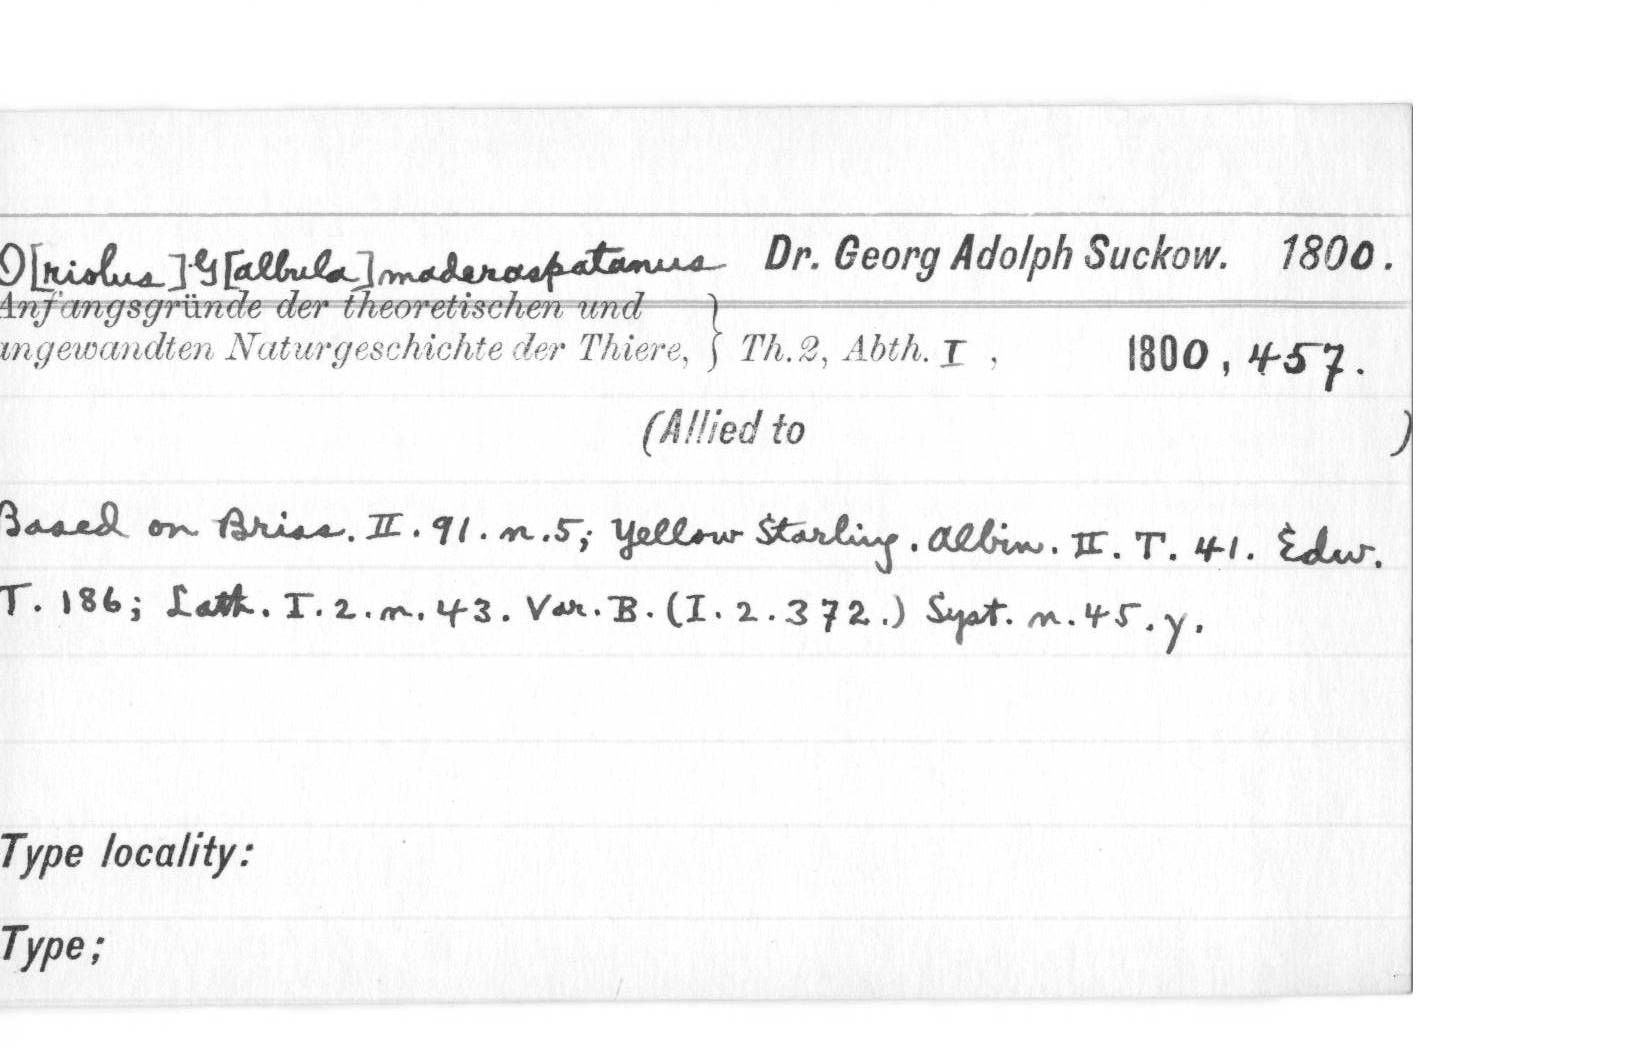 O[riolus] G[albula] maderaspatanus Dr. Georg Adolph Suckow. 1800.
Anfangsgründe der theoretischen und
angewandten Naturgeschichte der Thiere, } Th.2, Abth. I, 1800, 457.
(Allied to )
Based on Briss. II. 91. n.5; Yellow Starling. Albin. II. T. 41. Edw.
T. 186; Lath. I. 2. n. 43. Var. B. (I. 2. 372.) Syst. n. 45. γ.
Type locality:
Type;